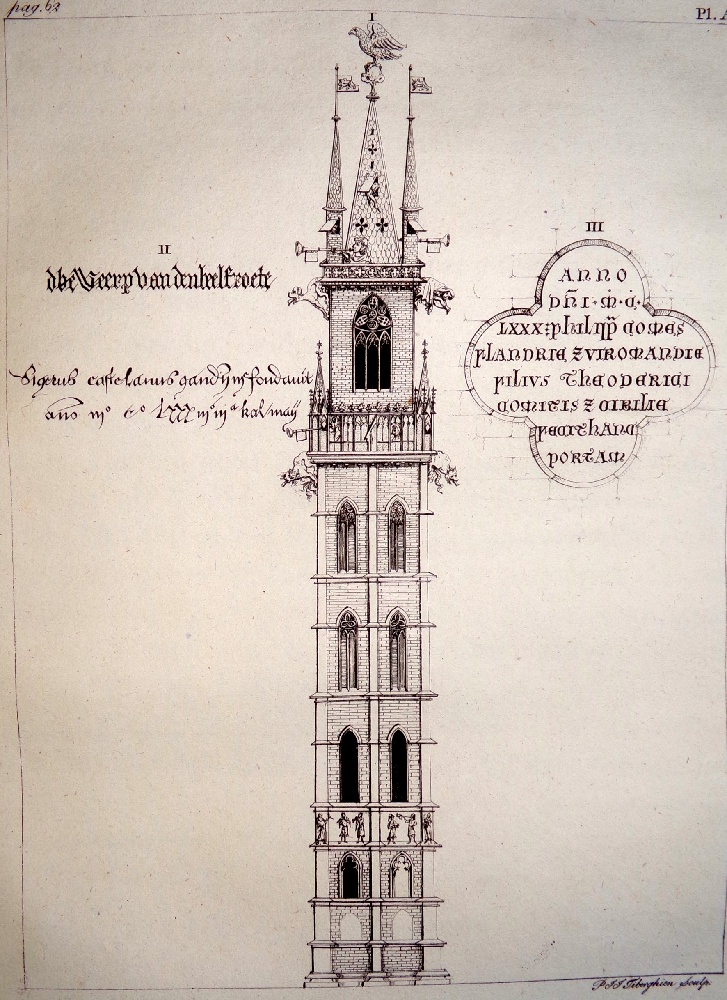 pag. 62
Pl. A
I
II
dbe Weerp van den beelfroete
Sigerus castelanus gandensis fondavit
III
ANNO
DÑI · M · C ·
LXXX : PhILIPP COMES
FLANDRIE Z VIROMANDIE
FILIVS ThEODERICI
COMITIS Z CIBILIE
FECIT hANC
PORTAM
P. J. J. Tiberghien Sculp.